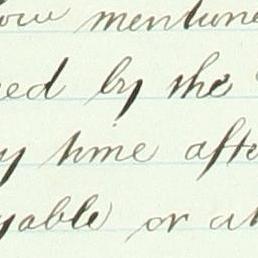 low mentione
ed by the
y time afte
yable or at